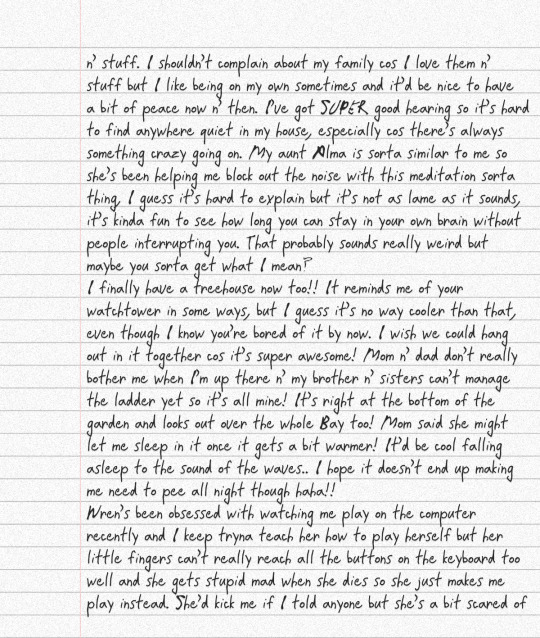 n' stuff. I shouldn't complain about my family cos I love them n'
stuff but I like being on my own sometimes and it'd be nice to have
a bit of peace now n' then. I've got SUPER good hearing so it's hard
to find anywhere quiet in my house, especially cos there's always
something crazy going on. My aunt Alma is sorta similar to me so
she's been helping me block out the noise with this meditation sorta
thing, I guess it's hard to explain but it's not as lame as it sounds,
it's kinda fun to see how long you can stay in your own brain without
people interrupting you. That probably sounds really weird but
maybe you sorta get what I mean?
I finally have a treehouse now too!! It reminds me of your
watchtower in some ways, but I guess it's no way cooler than that,
even though I know you're bored of it by now. I wish we could hang
out in it together cos it's super awesome! Mom n' dad don't really
bother me when I'm up there n' my brother n' sisters can't manage
the ladder yet so it's all mine! It's right at the bottom of the
garden and looks out over the whole Bay too! Mom said she might
let me sleep in it once it gets a bit warmer! It'd be cool falling
asleep to the sound of the waves.. I hope it doesn't end up making
me need to pee all night though haha!!
Wren's been obsessed with watching me play on the computer
recently and I keep tryna teach her how to play herself but her
little fingers can't really reach all the buttons on the keyboard too
well and she gets stupid mad when she dies so she just makes me
play instead. She'd kick me if I told anyone but she's a bit scared of